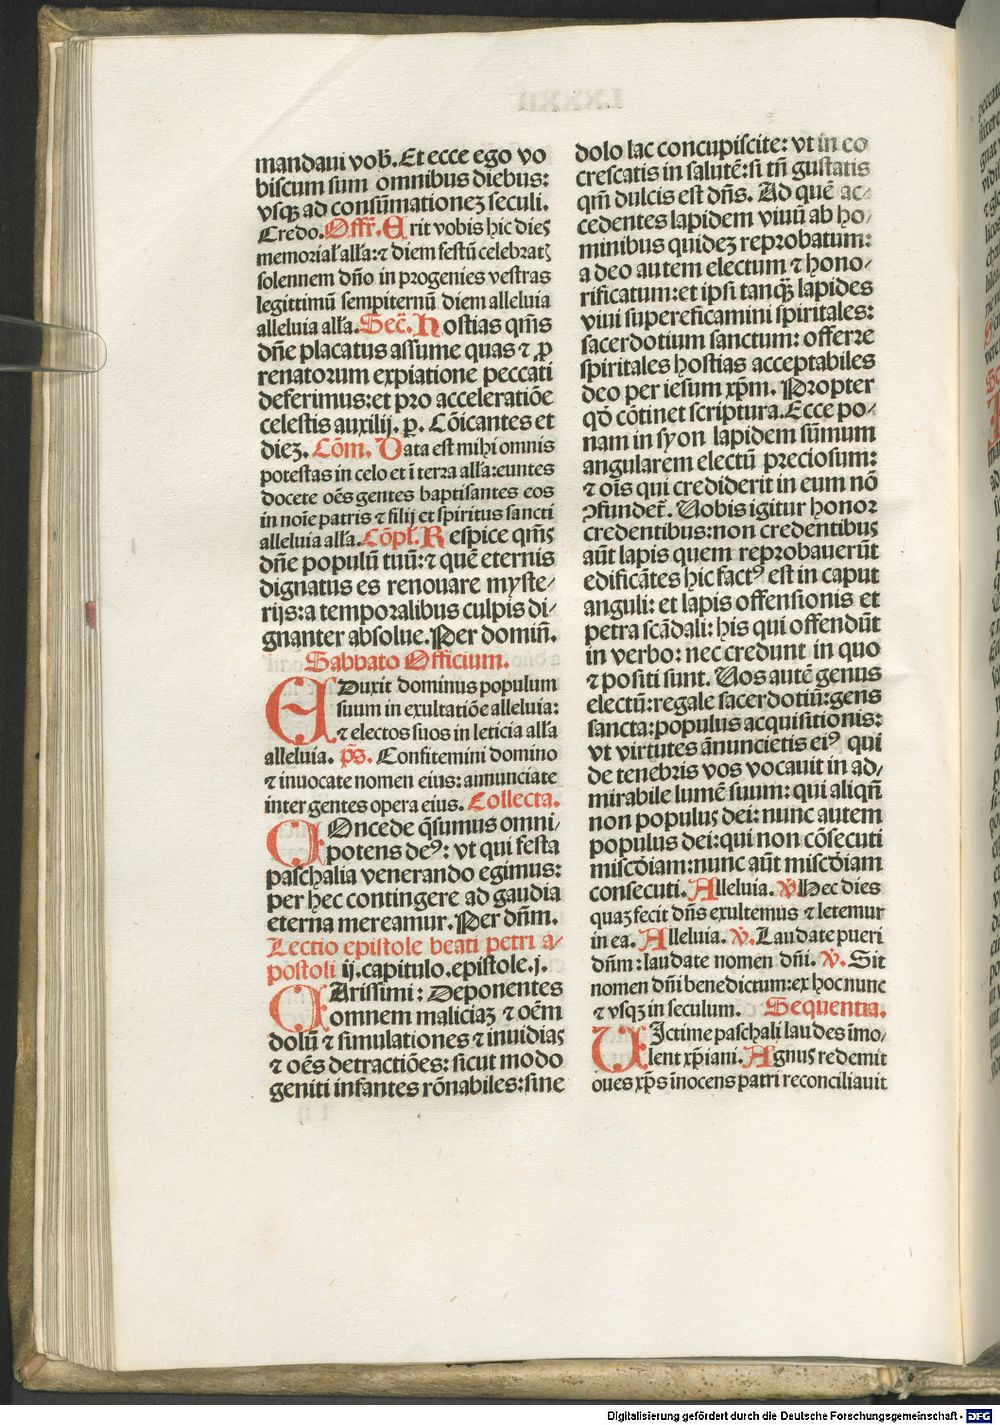 mandaui vob̃. Et ecce ego vo
biscum sum omnibus diebus:
vsqꝫ ad consũmationeꝫ seculi.
Credo. Offr̃. Erit vobis hic dies
memorial̃ all̃a: ⁊ diem festũ celebratꝭ
solennem dño in progenies vestras
legittimũ sempiternũ diem alleluia
alleluia all̃a. Sec̃. Hostias qm̃s
dñe placatus assume quas ⁊ ꝓ
renatorum expiatione peccati
deferimus: et pro acceleratiõe
celestis auxilij. p̱. Cõicantes et
dieꝫ. Cõm. Data est mihi omnis
potestas in celo et ĩ terra all̃a: euntes
docete oẽs gentes baptisantes eos
in noĩe patris ⁊ filij et spiritus sancti
alleluia all̃a. Cõpl̃. Respice qm̃s
dñe populũ tuũ: ⁊ quẽ eternis
dignatus es renouare myste⸗
rijs: a temporalibus culpis di⸗
gnanter absolue. Per domiñ.
Sabbato Officium.
EDuxit dominus populum
suum in exultatiõe alleluia:
⁊ electos suos in leticia all̃a
alleluia. p̃s. Confitemini domino
⁊ inuocate nomen eius: annunciate
inter gentes opera eius. Collecta.
COncede q̃sumus omni⸗
potens deꝰ: vt qui festa
paschalia venerando egimus:
per hec contingere ad gaudia
eterna mereamur. Per dñm.
Lectio epistole beati petri a⸗
postoli ij. capitulo. epistole. j.
CArissimi: Deponentes
omnem maliciaꝫ ⁊ oẽm
dolũ ⁊ simulationes ⁊ inuidias
⁊ oẽs detractiões: sicut modo
geniti infantes rõnabiles: sine
dolo lac concupiscite: vt in eo
crescatis in salutẽ: si tñ gustatis
qm̃ dulcis est dñs. Ad quẽ ac⸗
cedentes lapidem viuũ ab ho⸗
minibus quideꝫ reprobatum:
a deo autem electum ⁊ hono⸗
rificatum: et ipsi tanqꝫ lapides
viui superedificamini spiritales:
sacerdotium sanctum: offerre
spiritales hostias acceptabiles
deo per iesum xp̃m. Propter
qõ cõtinet scriptura. Ecce po⸗
nam in syon lapidem sũmum
angularem electũ preciosum:
⁊ oĩs qui crediderit in eum nõ
ꝯfundet̃. Uobis igitur honor
credentibus: non credentibus
aũt lapis quem reprobauerũt
edificãtes hic factꝰ est in caput
anguli: et lapis offensionis et
petra scãdali: his qui offendũt
in verbo: nec credunt in quo
⁊ positi sunt. Uos autẽ genus
electũ: regale sacerdotiũ: gens
sancta: populus acquisitionis:
vt virtutes ãnuncietis eiꝰ qui
de tenebris vos vocauit in ad⸗
mirabile lumẽ suum: qui aliqñ
non populus dei: nunc autem
populus dei: qui non cõsecuti
misc̃diam: nunc aũt misc̃diam
consecuti. Alleluia. ℣. Hec dies
quaꝫ fecit dñs exultemus ⁊ letemur
in ea. Alleluia. ℣. Laudate pueri
dñm: laudate nomen dñi. ℣. Sit
nomen dñi benedictum: ex hoc nunc
⁊ vsqꝫ in seculum. Sequentia.
UIctime paschali laudes ĩmo⸗
lent xp̃iani. Agnus redemit
oues xp̃s ĩnocens patri reconciliauit
Digitalisierung gefördert durch die Deutsche Forschungsgemeinschaft - DFG